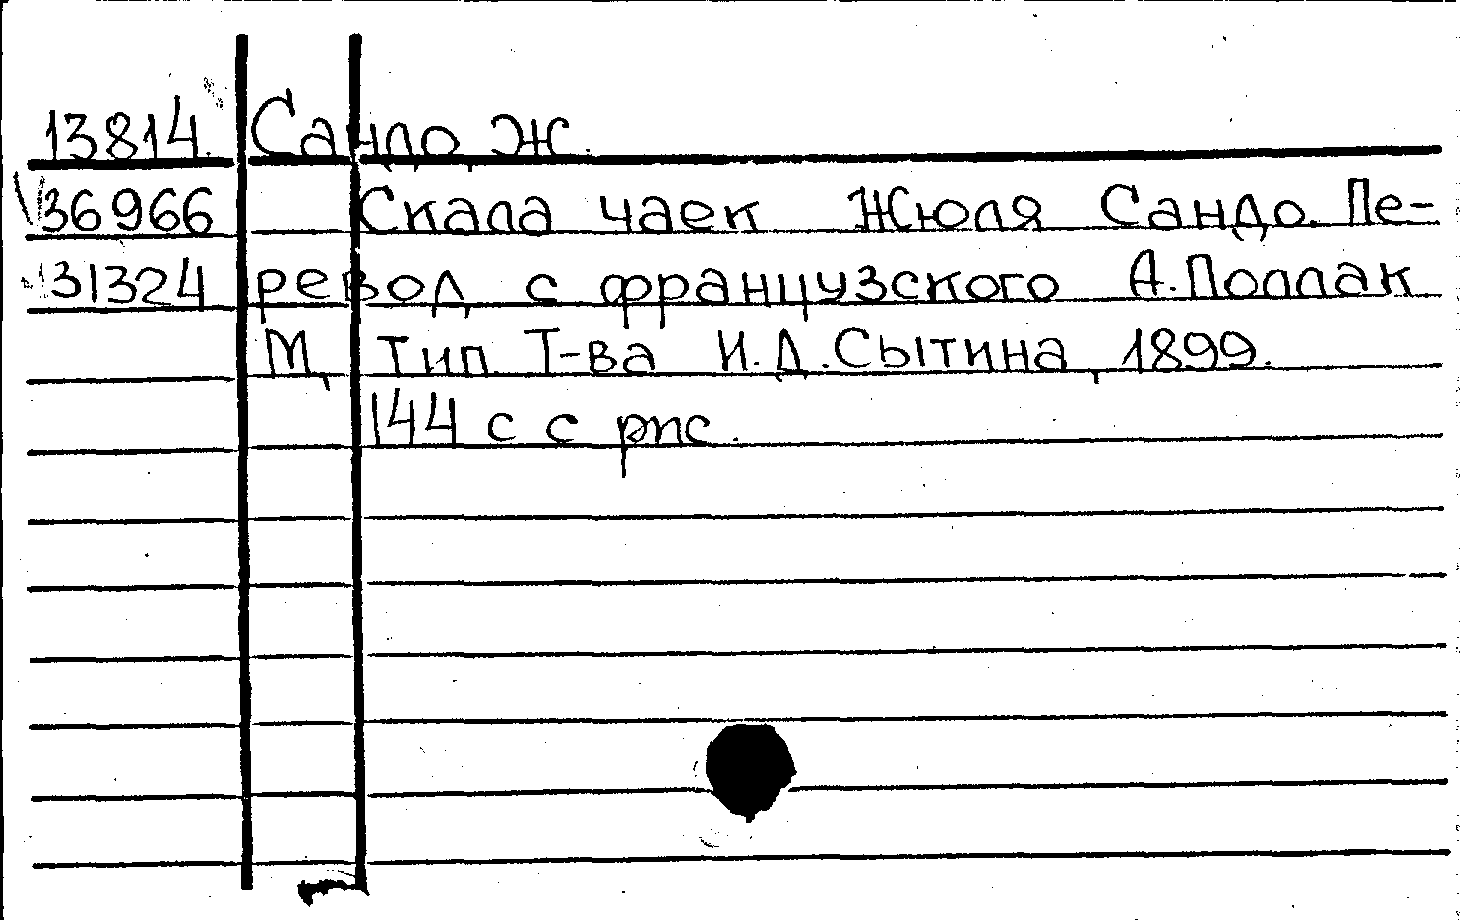 13814. Сандо, Ж.
36966 Скала чаек Жюля Сандо. Пе-
31324 ревод с французского А. Поллак
М, Тип. Т-ва И.Д. Сытина, 1899.
144 с с рис.